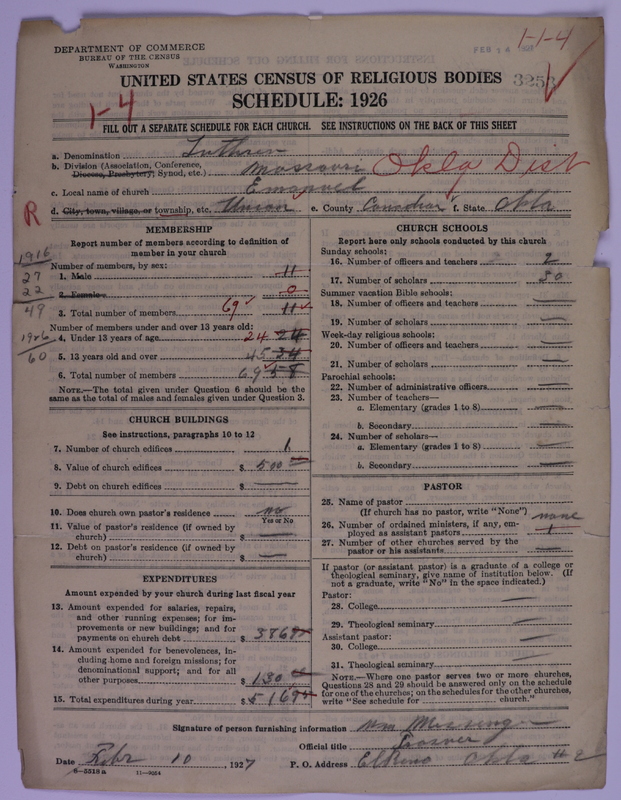 DEPARTMENT OF COMMERCE
BUREAU OF THE CENSUS
WASHINGTON
FEB 14
1-1-4
3253
UNITED STATES CENSUS OF RELIGIOUS BODIES
SCHEDULE: 1926
1-4
FILL OUT A SEPARATE SCHEDULE FOR EACH CHURCH. SEE INSTRUCTIONS ON THE BACK OF THIS SHEET
a. Denomination Luthren
b. Division (Association, Conference, Diocese, Presbytery, Synod, etc.) Missouri Okla Dist
c. Local name of church Emanuel
d. City, town, village, or township, etc. Union e. County Canadian f. State Okla
R
1916
27
22
49
1926
60
MEMBERSHIP
Report number of members according to definition of
member in your church
Number of members, by sex:
1. Male 11
2. Female 0
3. Total number of members 69 11
Number of members under and over 13 years old:
4. Under 13 years of age 24 24
5. 13 years old and over 45 34
6. Total number of members 69 58
NOTE.—The total given under Question 6 should be
same as the total of males and females given under Question 3.
CHURCH BUILDINGS
See instructions, paragraphs 10 to 12
7. Number of church edifices 1
8. Value of church edifices $ 500
9. Debt on church edifices $ —
10. Does church own pastor's residence no
Yes or No
11. Value of pastor's residence (if owned by
church) $ —
12. Debt on pastor's residence (if owned by
church) $ —
EXPENDITURES
Amount expended by your church during last fiscal year
13. Amount expended for salaries, repairs,
and other running expenses; for im-
provements or new buildings; and for
payments on church debt $ 386
14. Amount expended for benevolences, in-
cluding home and foreign missions; for
denominational support; and for all
other purposes $ 130
15. Total expenditures during year $ 516
CHURCH SCHOOLS
Report here only schools conducted by this church
Sunday schools:
16. Number of officers and teachers 2
17. Number of scholars 30
Summer vacation Bible schools:
18. Number of officers and teachers —
19. Number of scholars —
Week-day religious schools:
20. Number of officers and teachers —
21. Number of scholars —
Parochial schools:
22. Number of administrative officers —
23. Number of teachers—
a. Elementary (grades 1 to 8) —
b. Secondary —
24. Number of scholars—
a. Elementary (grades 1 to 8) —
b. Secondary —
PASTOR
25. Name of pastor
(If church has no pastor, write "None") none
26. Number of ordained ministers, if any, em-
ployed as assistant pastors 1
27. Number of other churches served by the
pastor or his assistants —
If pastor (or assistant pastor) is a graduate of a college or
theological seminary, give name of institution below. (If
not a graduate, write "No" in the space indicated.)
Pastor:
28. College —
29. Theological seminary —
Assistant pastor:
30. College —
31. Theological seminary —
NOTE.—Where one pastor serves two or more churches,
Questions 28 and 29 should be answered only on the schedule
for one of the churches; on the schedules for the other churches,
write "See schedule for church."
Signature of person furnishing information Wm
Official title
Date 10, 1927 P. O. Address El Reno Okla # 2
6-5518 a 11-9054